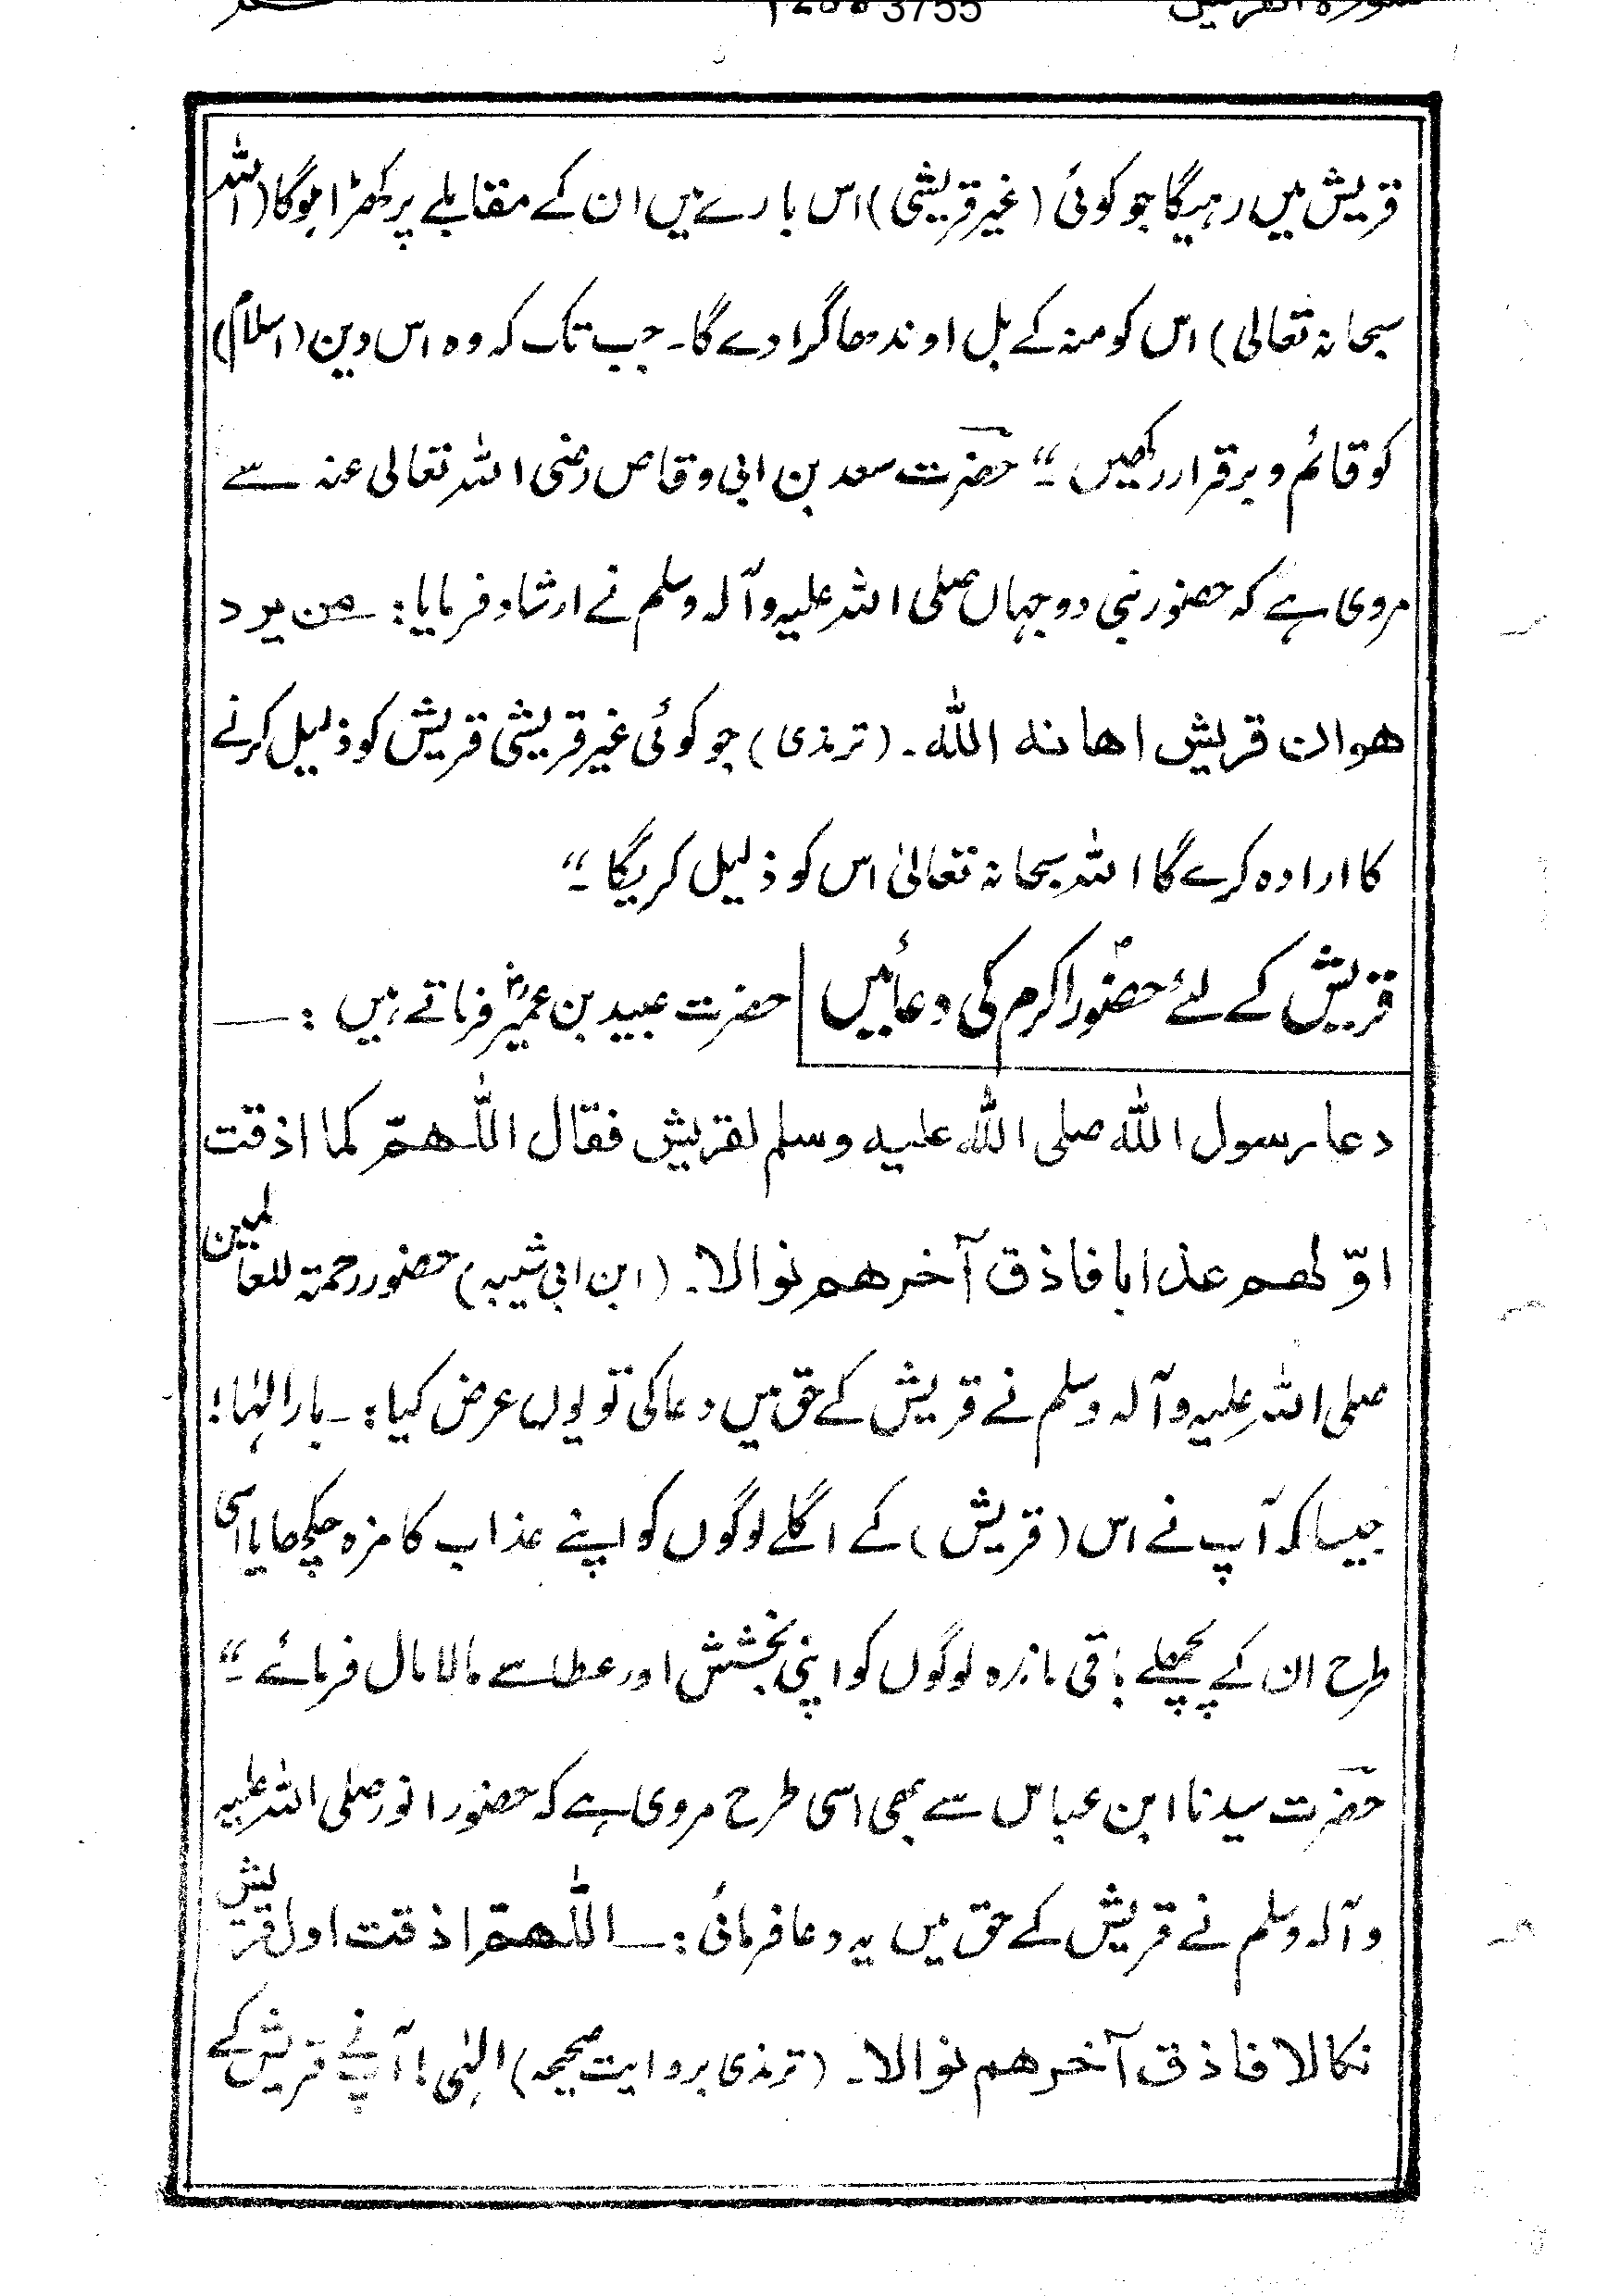 3755
قریش میں رہیگا جو کوئی (غیر قریشی) اس بارے میں ان کے مقابلے پر کھڑا ہوگا (اللہ
سبحانہ تعالیٰ) اس کو منہ کے بل اوندھا گرا دے گا۔ جب تک کہ وہ اس دین (اسلام)
کو قائم و برقرار رکھیں ۔“ حضرت سعد بن ابی وقاص رضی اللہ تعالیٰ عنہ سے
مروی ہے کہ حضور نبی دو جہاں صلی اللہ علیہ وآلہ وسلم نے ارشاد فرمایا :۔ من یرد
هوان قریش اهانه الله ۔ (ترمذی) جو کوئی غیر قریشی قریش کو ذلیل کرنے
کا ارادہ کرے گا اللہ سبحانہ تعالیٰ اس کو ذلیل کریگا ۔“
قریش کے لئے حضورؐ اکرم کی دعائیں | حضرت عبید بن عمیرؓ فرماتے ہیں :۔
دعا رسول الله صلی الله علیه وسلم لقریش فقال اللّٰهمّ کما اذقت
اوّلهم عذابا فاذق آخرهم نوالا ۔ (ابن ابی شیبہ) حضور رحمۃ للعالمین
صلی اللہ علیہ وآلہ وسلم نے قریش کے حق میں دعا کی تو یوں عرض کیا :۔ بار الٰہا !
جیسا کہ آپ نے اس (قریش) کے اگلے لوگوں کو اپنے عذاب کا مزہ چکھایا اسی
طرح ان کے پچھلے باقی ماندہ لوگوں کو اپنی بخشش اور عطا سے مالا مال فرمائے ۔“
حضرت سیدنا ابن عباس سے بھی اسی طرح مروی ہے کہ حضور انور صلی اللہ علیہ
وآلہ وسلم نے قریش کے حق میں یہ دعا فرمائی :۔ اللّٰهمّ اذقت اول قریش
نکالا فاذق آخرهم نوالا ۔ (ترمذی بروایت صحیحہ) الٰہی ! آپ نے قریش کے